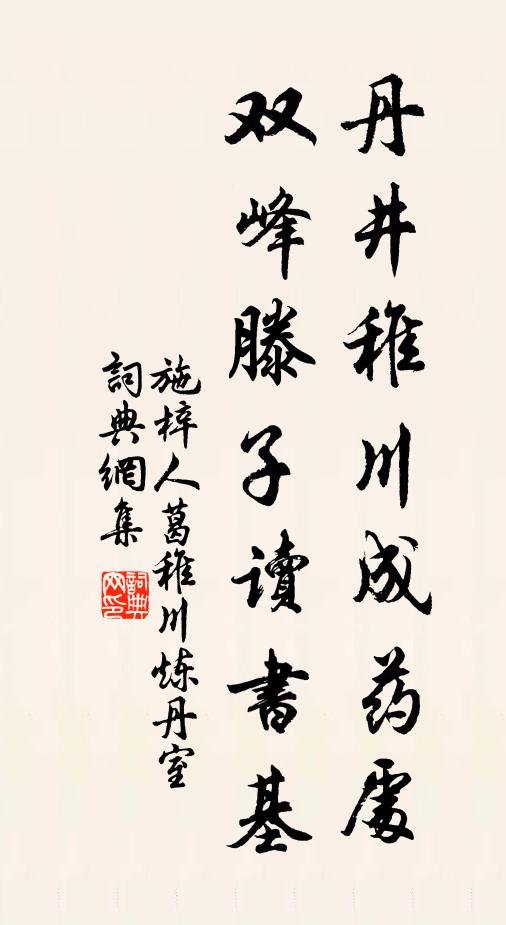 丹井稚川成药處
双峰滕子读書基
施梓人葛稚川炼丹室
詞典網集
詞典网印